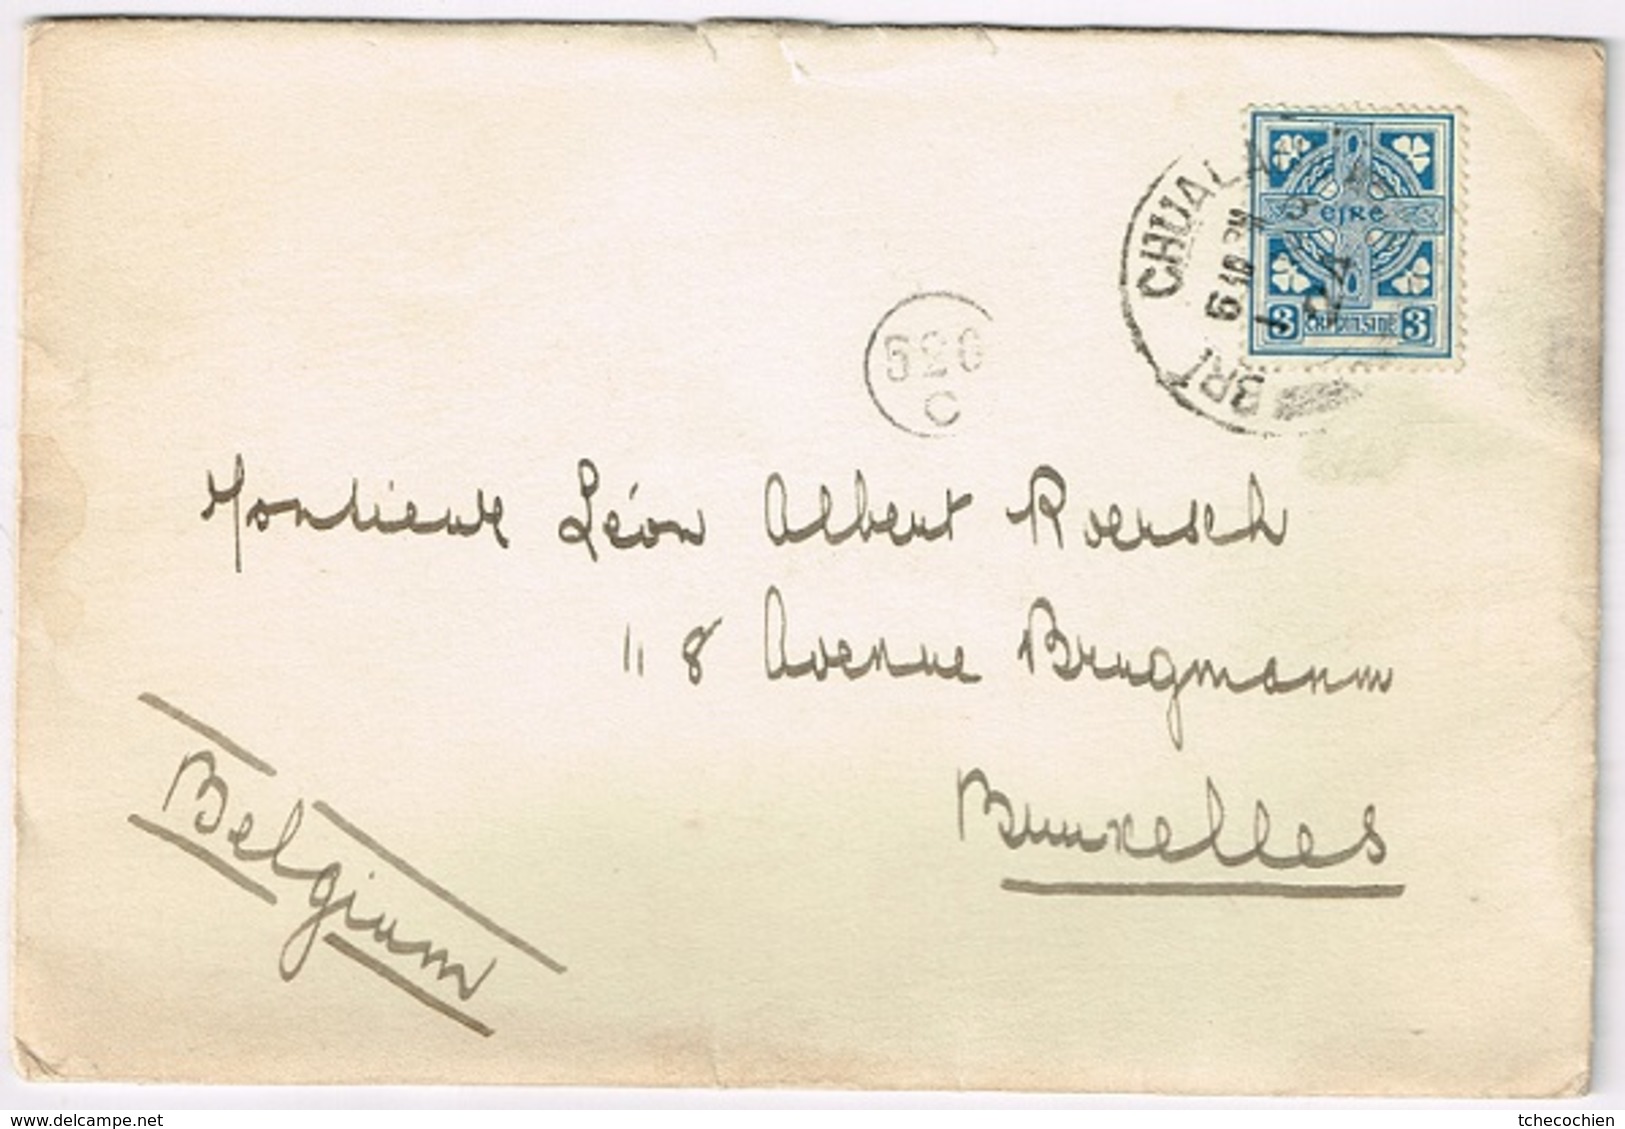 CHUALA
BRÍ
éIRe
3 3
Monsieur Léon Albert Roersch
118 Avenue Brugmann
Bruxelles
Belgium
delcampe.net
tchecochien